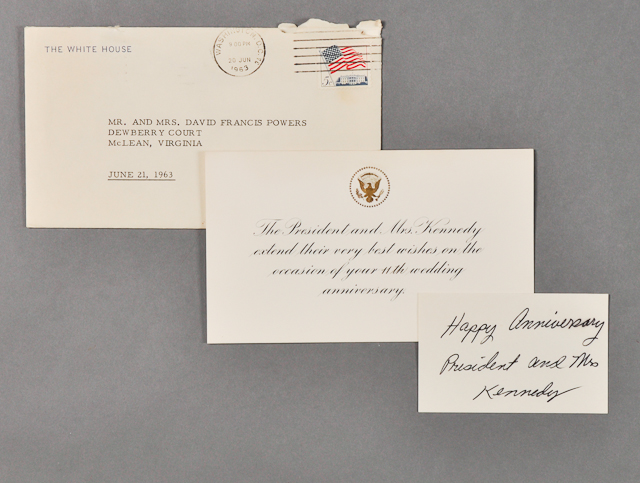 THE WHITE HOUSE
WASHINGTON, D.C.
20 JUN
1963
5¢
MR. AND MRS. DAVID FRANCIS POWERS
DEWBERRY COURT
McLEAN, VIRGINIA
JUNE 21, 1963
The President and Mrs. Kennedy
extend their very best wishes on the
occasion of your 11th wedding
anniversary.
Happy Anniversary
President and Mrs
Kennedy